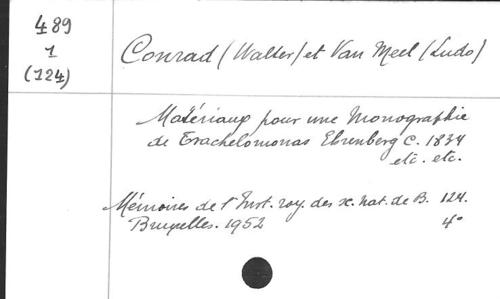 489
1
(124)
Conrad (Walter) et Van Meel (Ludo)
Matériaux pour une Monographie
de Trachelomonas Ehrenberg C. 1834
etc. etc.
Mémoires de l'Inst. roy. des sc. nat. de B. 124.
Bruxelles. 1952 4°